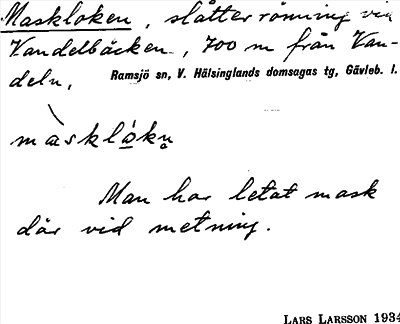 Maskloken, slåtterröning vid
Vandelbäcken, 700 m från Van-
deln,
Ramsjö sn, V. Hälsinglands domsagas tg, Gävleb. l.
màsklò̱kn̥
Man har letat mask
där vid metning.
LARS LARSSON 1934